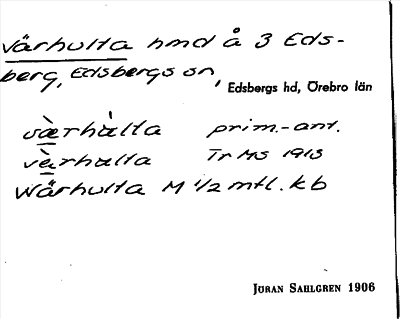 Värhulta hmd å 3 Eds-
berg, Edsbergs sn,
Edsbergs hd, Örebro län
værhàlta prim.-ant.
vàrhalta Tr MS 1913
Wärhulta M 1/2 mtl. kb
JÖRAN SAHLGREN 1906